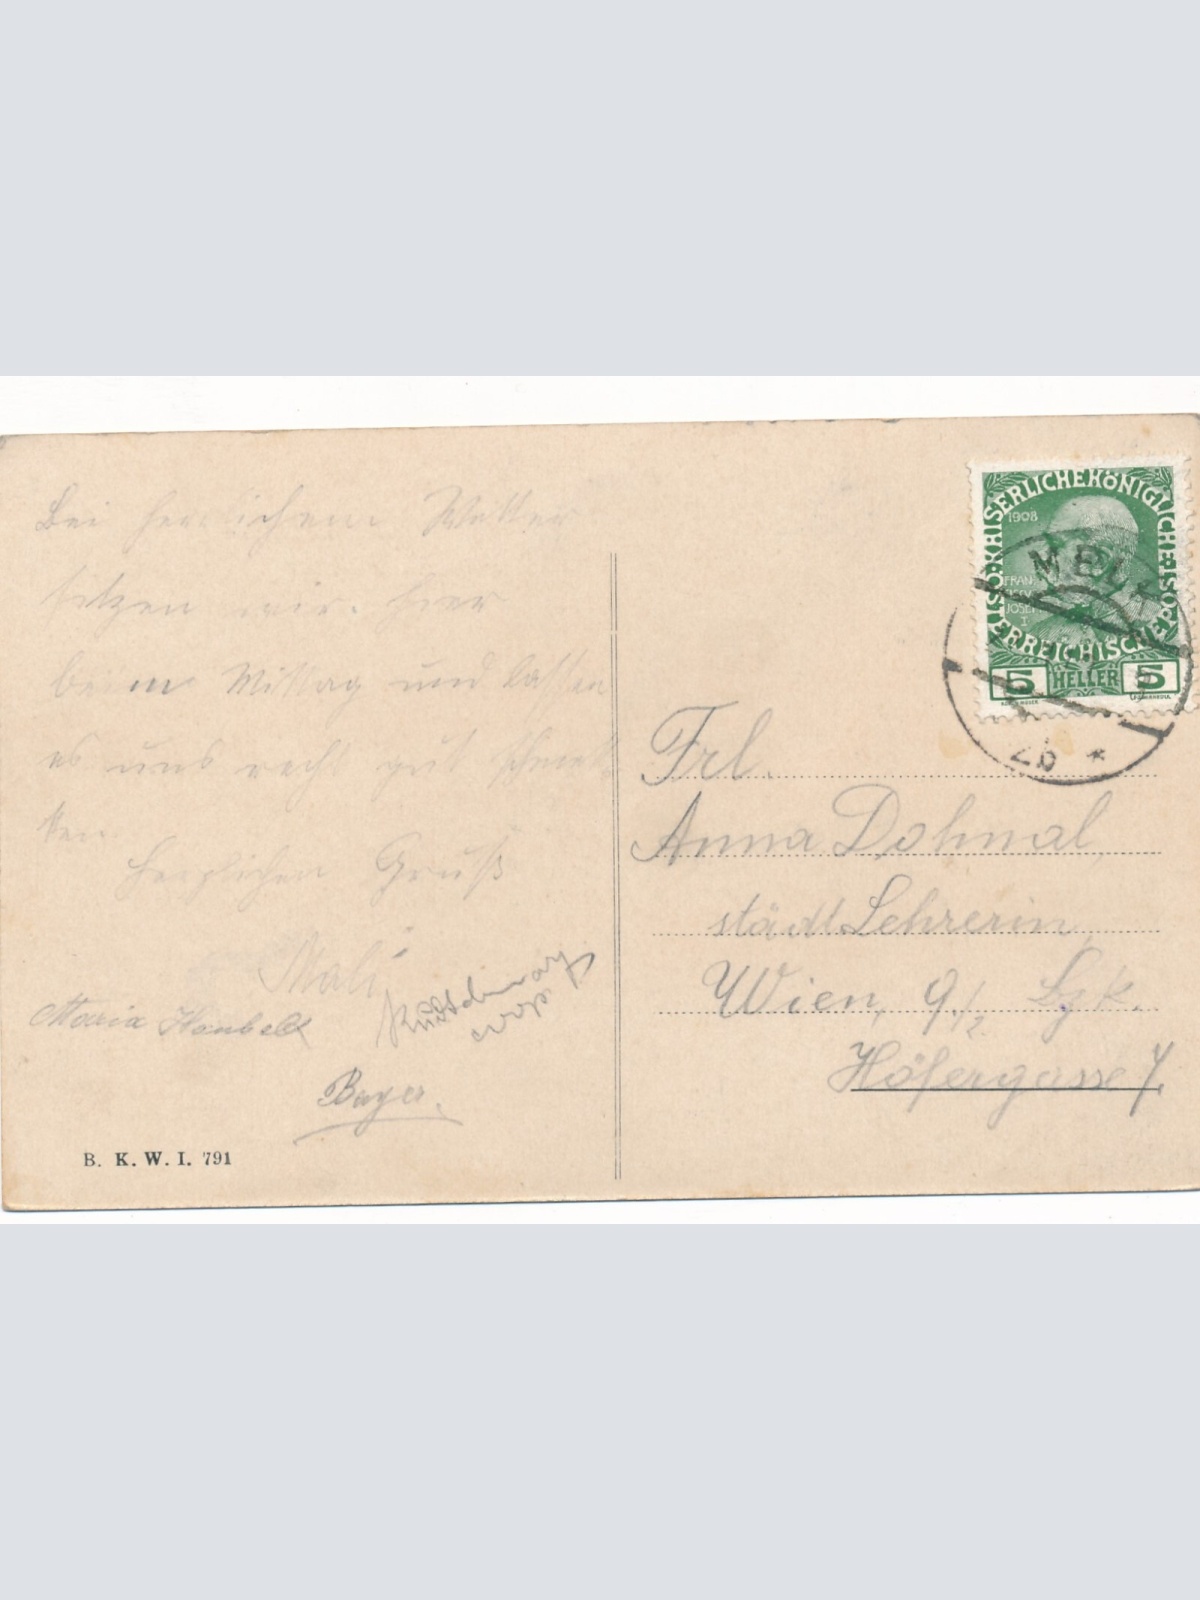 Bei herrlichem Wetter
sitzen wir hier
beim Mittag und lassen
es uns recht gut schmek-
ken.
Herzlichen Gruß
Mali
Maria
Bayer.
B. K. W. I. 791
KAISERLICHE KÖNIGLICHE
ÖSTERREICHISCHE POST
1908
FRANZ
JOSEF
I
5 HELLER 5
MELK
2b *
Frl.
Anna Dohnal,
städt Lehrerin,
Wien, 9/2
Höfergasse 7.